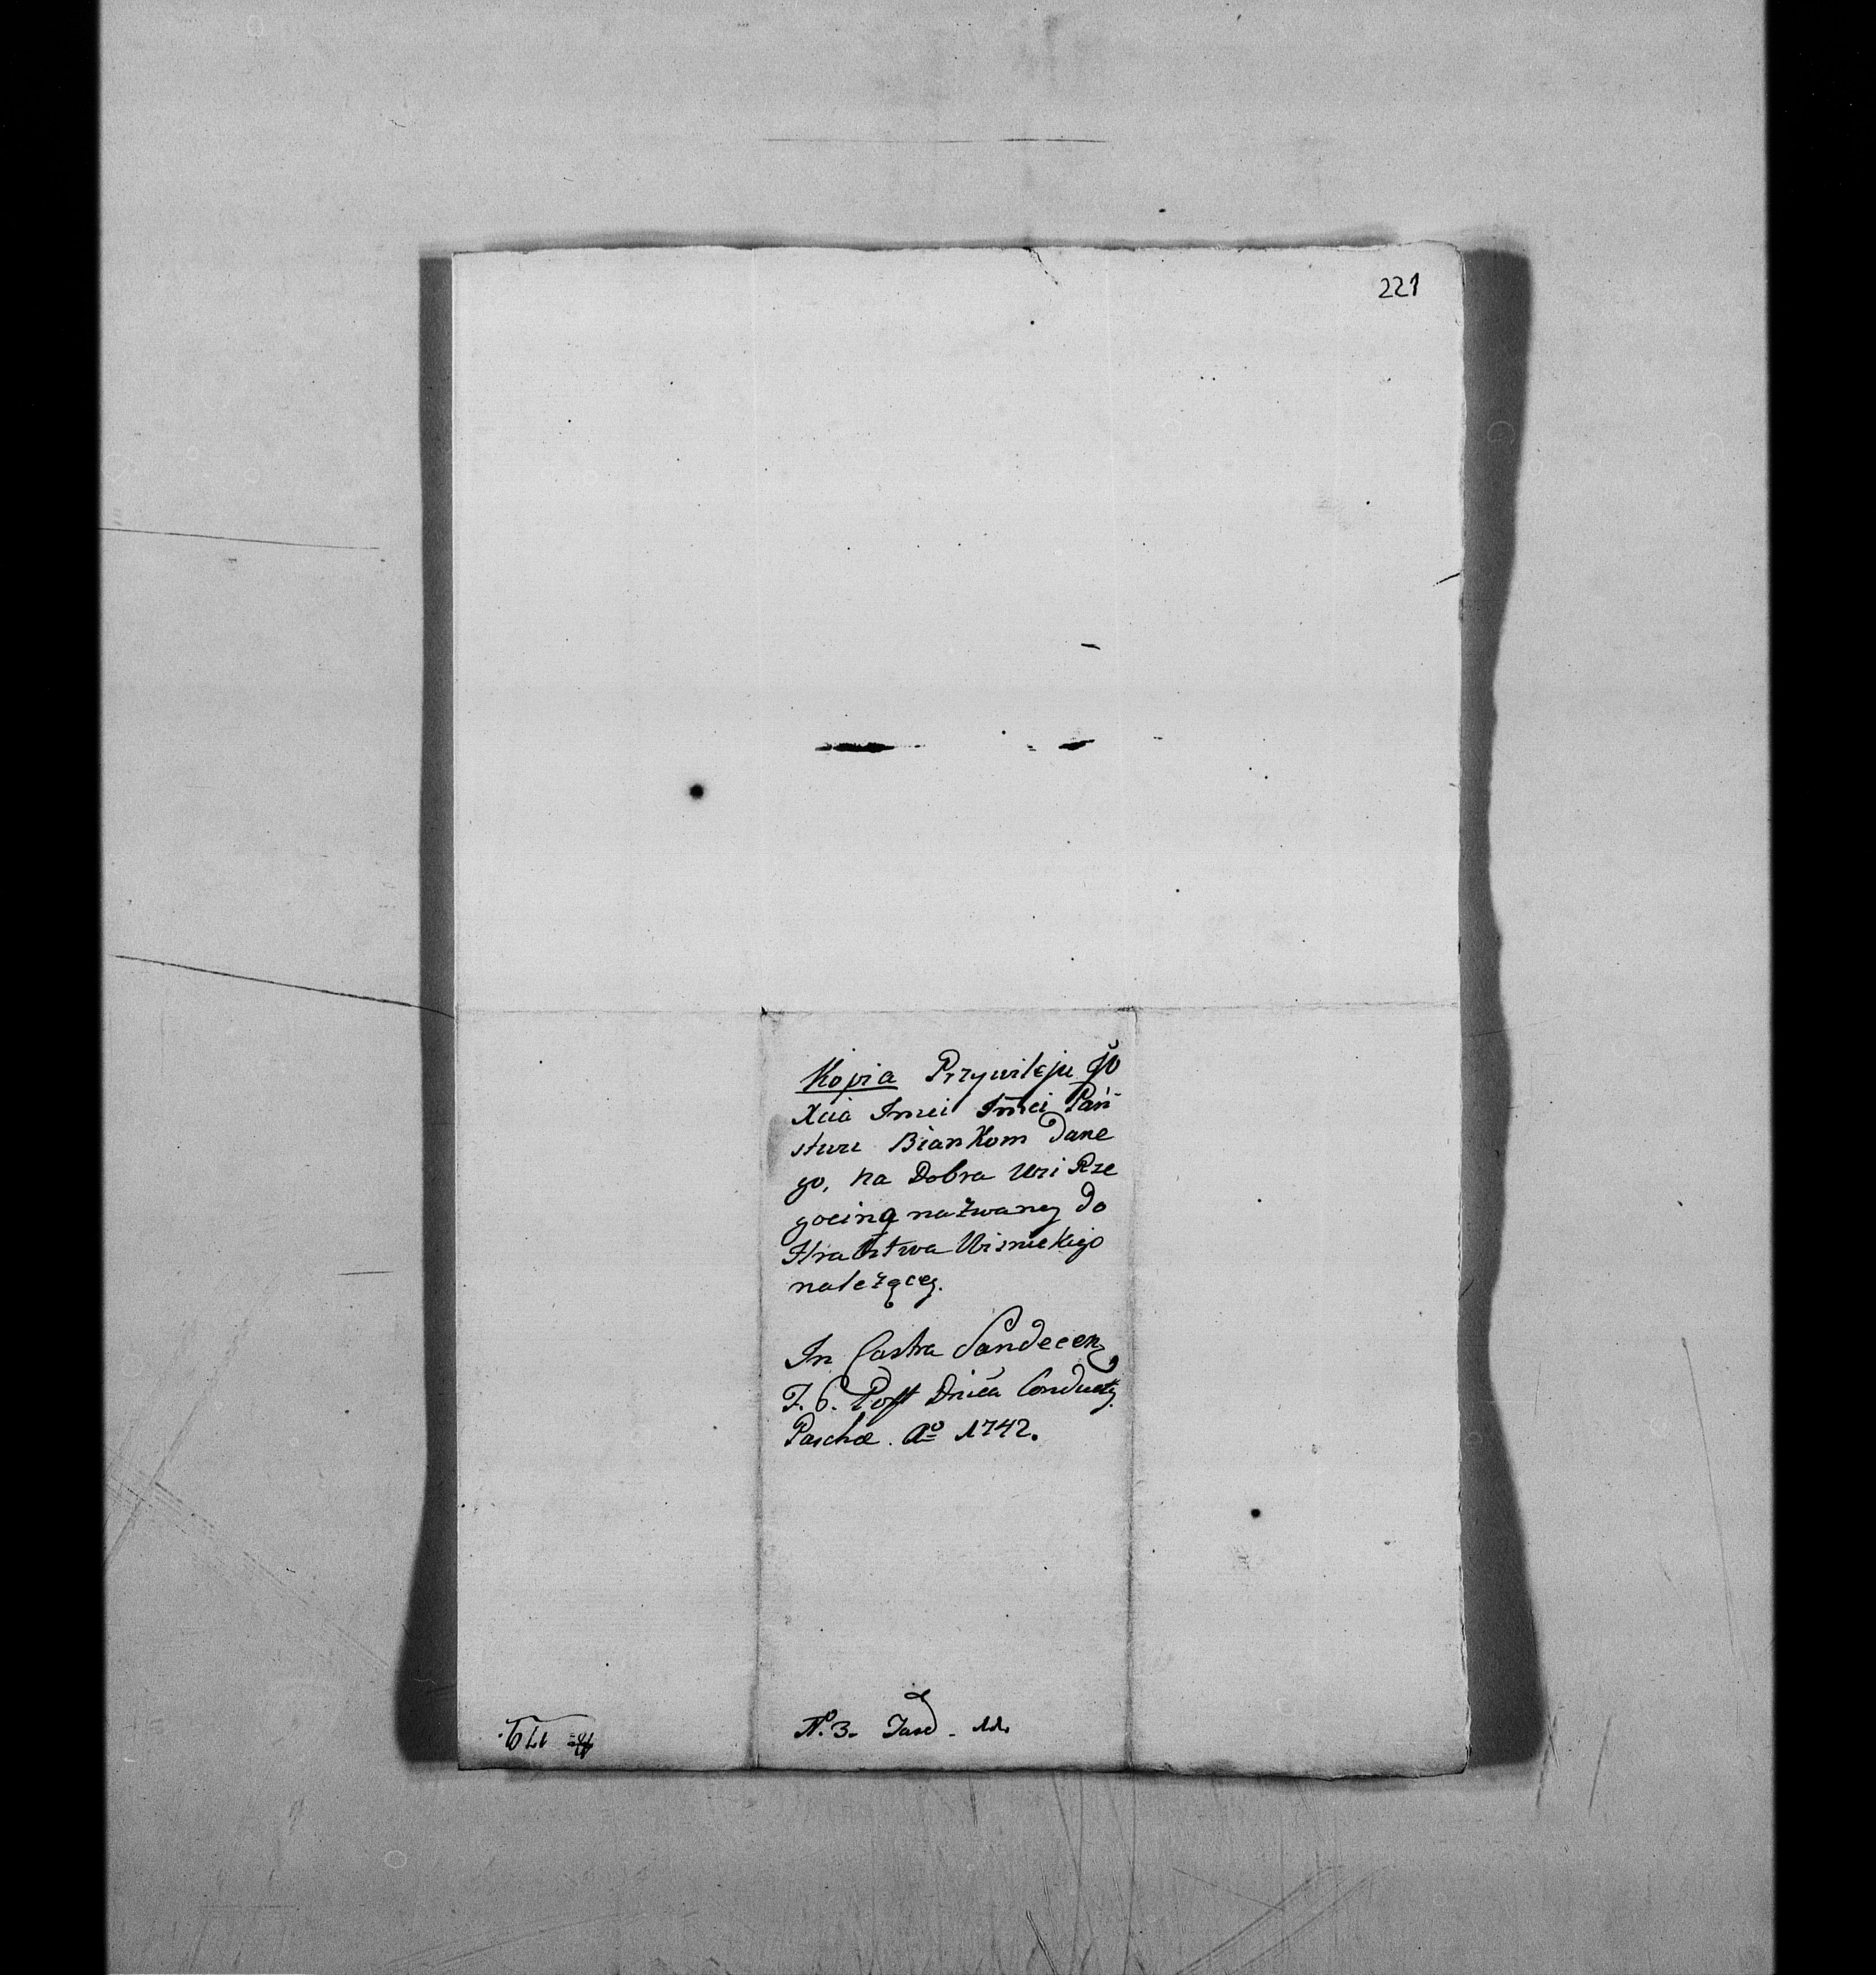 221
Kopia Przywileju Jo
Xcia Imci Imci Pań-
stwu Biankom dane
go, na Dobra Wsi Rze
gociną nazwaney do
Hrabstwa Wisnickiego
należącey.
In Castra Sandecen
F. 6. Post Dnicā Conductq
Paschæ. Ao 1742.
N. 3. Fasc. 11.
179.